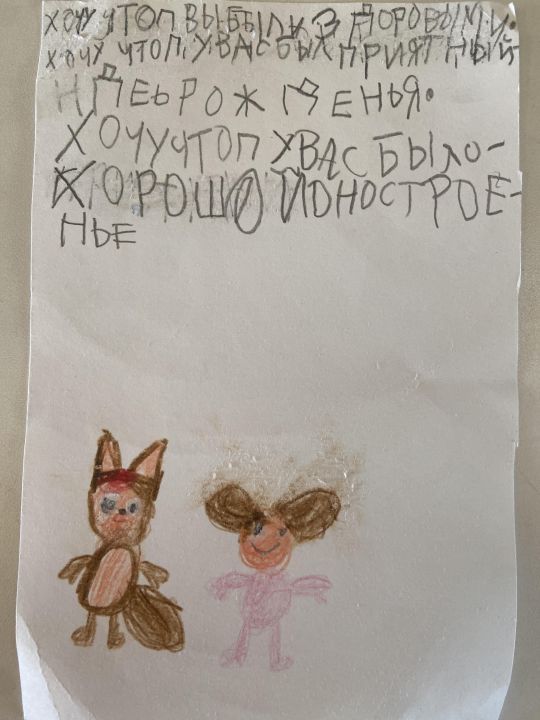 ХОЧУ ЧТОП ВЫ БЫЛИ ЗДОРОВЫМИ.
ХОЧУ ЧТОП, У ВАС БЫЛ ПРИЯТНЫЙ-
НДЕЬ РОЖДЕНЬЯ.
ХОЧУ ЧТОП У ВАС БЫЛО-
ХОРОШО ИОНОСТРОЕ-
НЬЕ